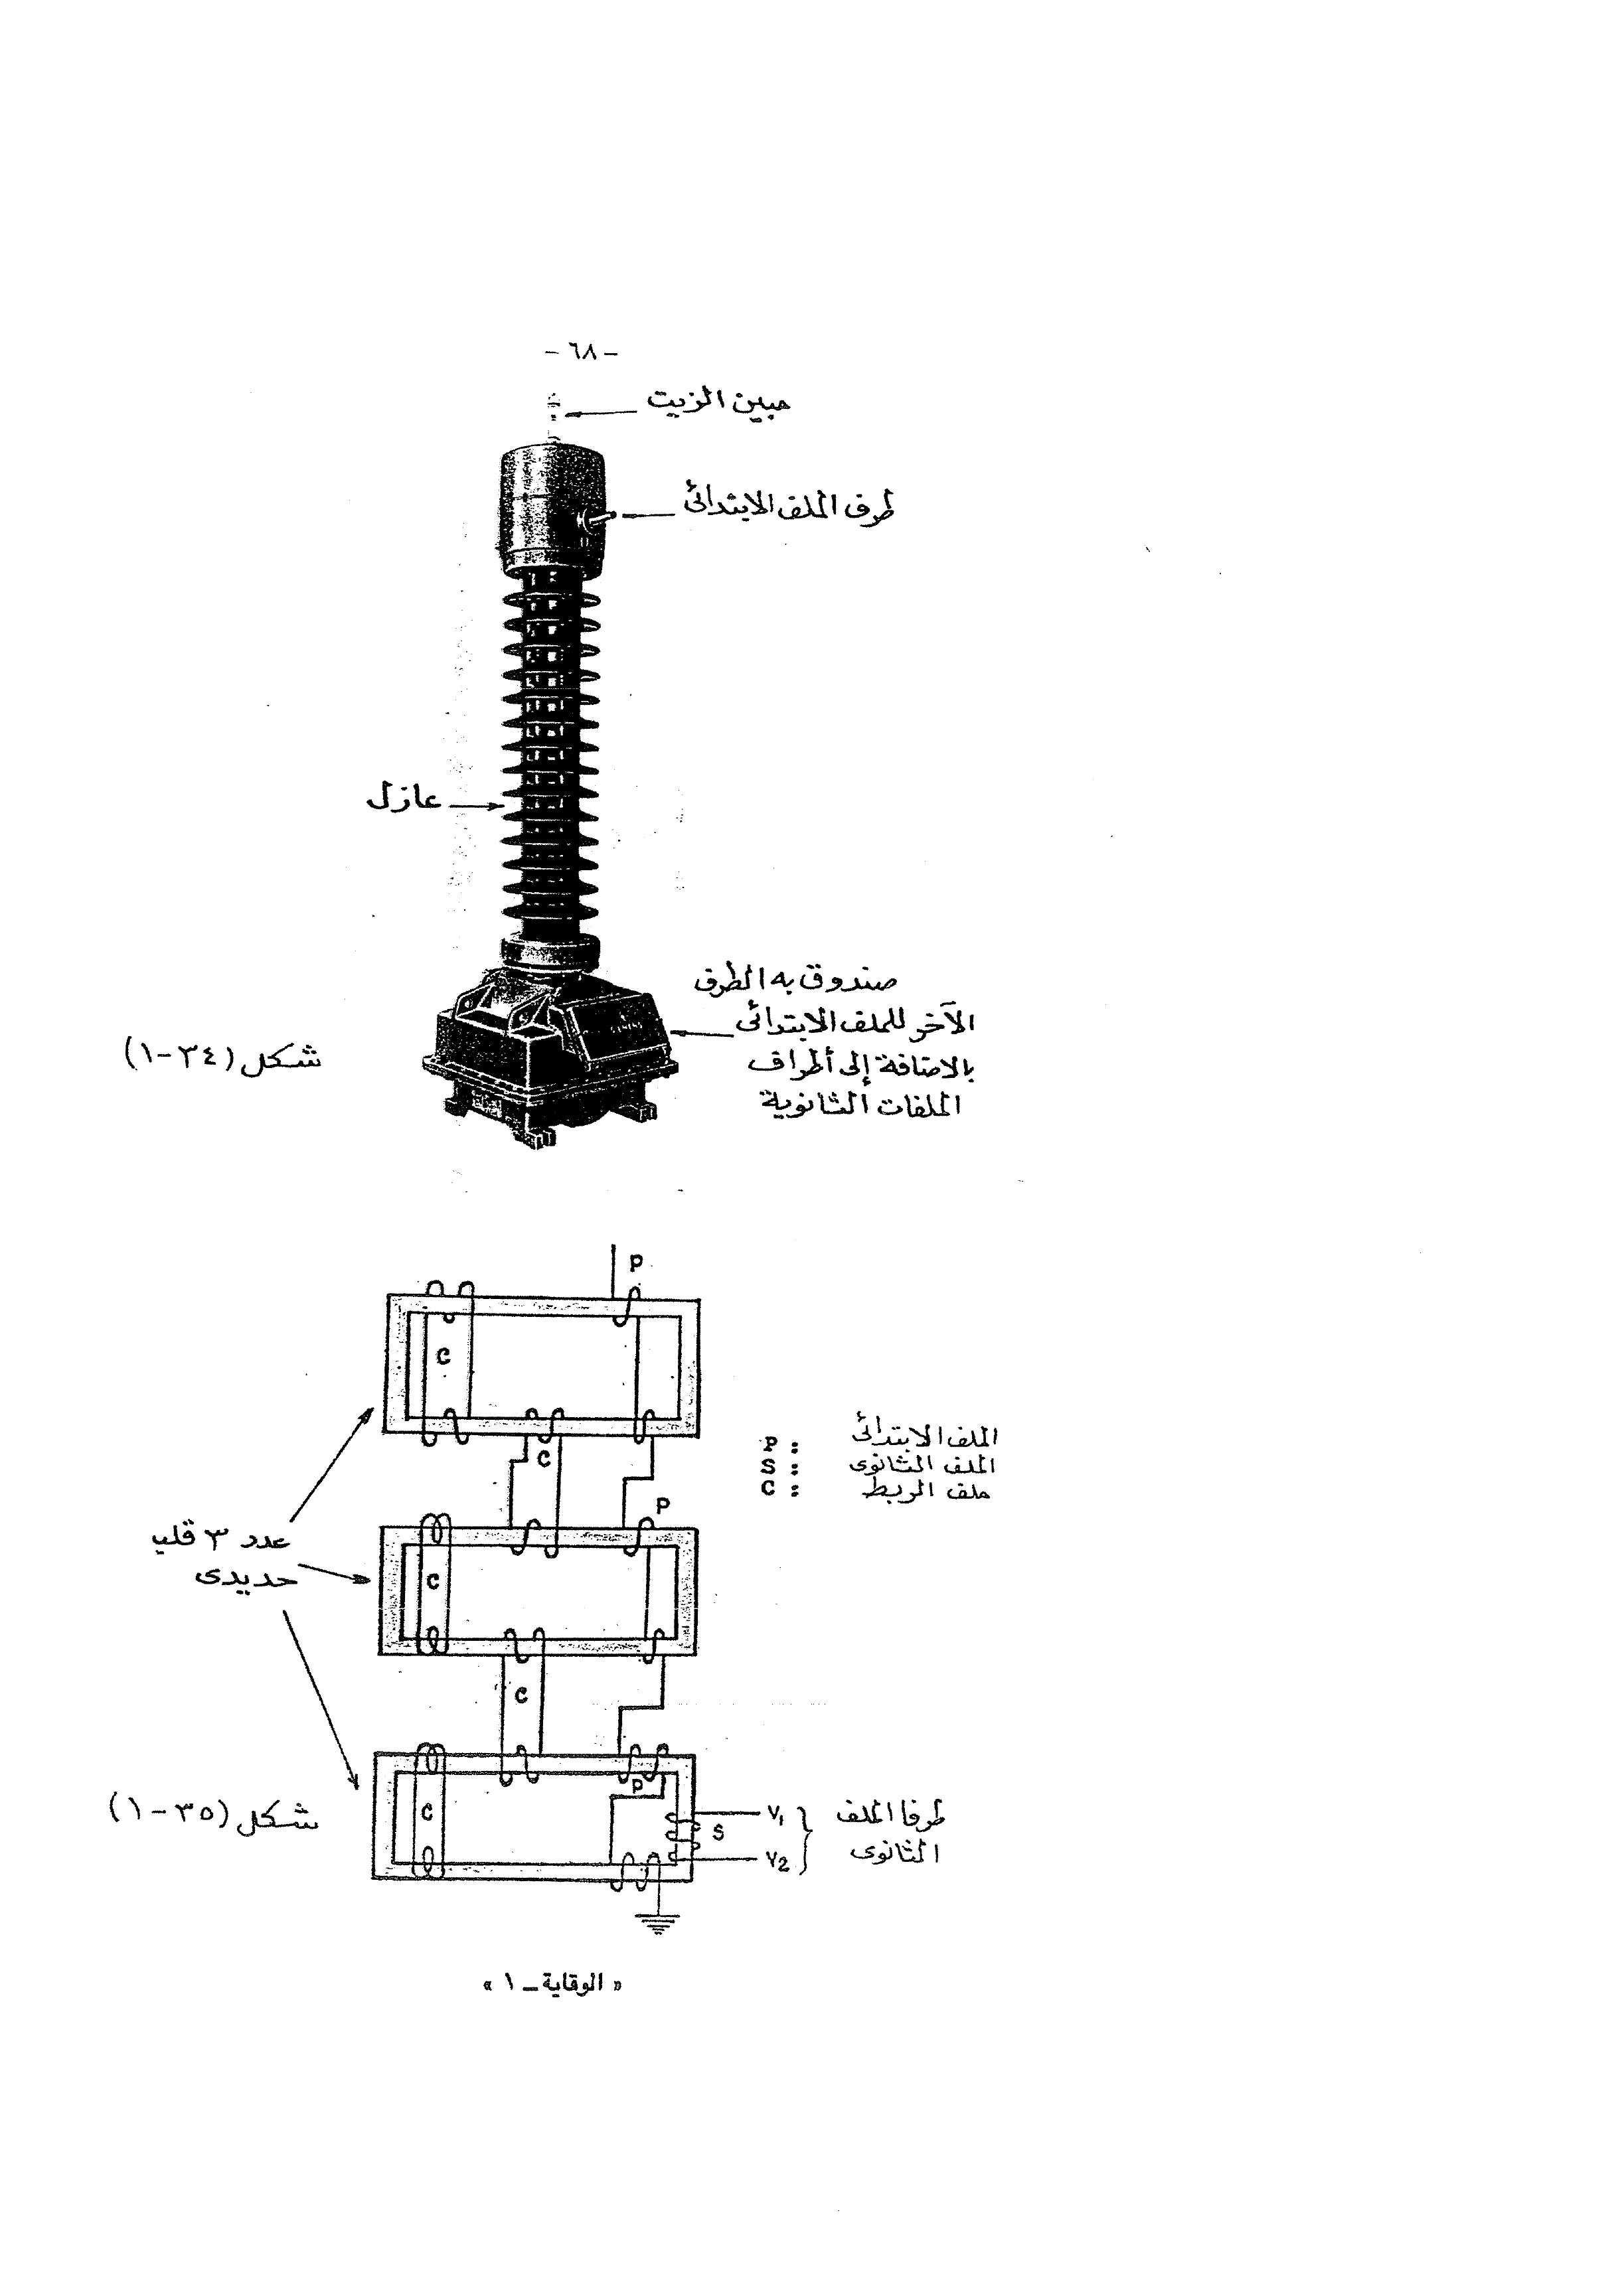 - ٦٨ -
مبين الزيت
طرف الملف الابتدائى
عازل
صندوق به الطرف
الآخر للملف الابتدائى
بالاضافة إلى أطراف
الملفات الثانوية
شكل (٣٤-١)
P
C
C
P
C
C
P
C
S
V₁
V₂
P : الملف الابتدائى
S : الملف الثانوى
C : ملف الربط
عدد ٣ قلب
حديدى
طرفا الملف
الثانوى
شكل (٣٥-١)
« الوقاية ـ ١ »